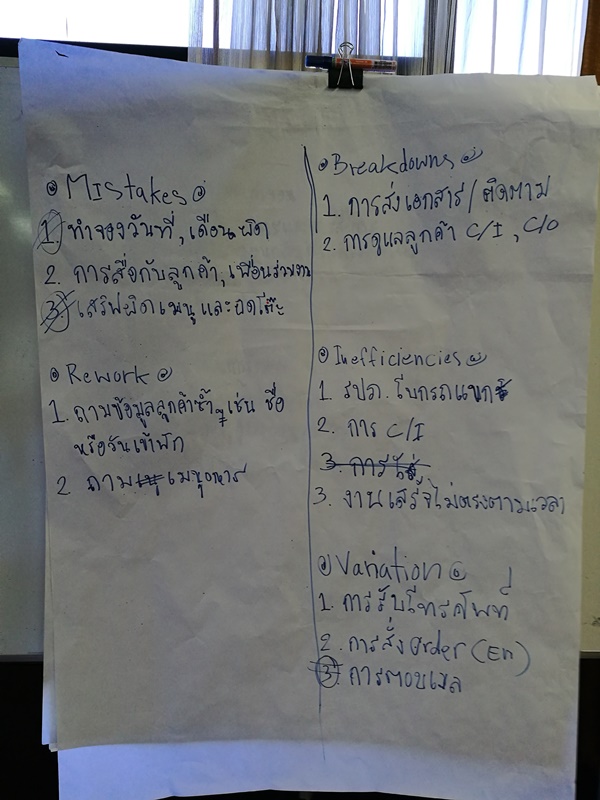 Mistakes
1. ทำจองวันที่, เดือนผิด
2. การสื่อกับลูกค้า, เพื่อนร่วมงาน
3. เสริฟผิดเมนูและผิดโต๊ะ
Rework
1. ถามข้อมูลลูกค้าซ้ำๆ เช่น ชื่อ
หรือวันเข้าพัก
2 ถามเมนูอาหาร
Breakdowns
1. การส่งเอกสาร/ติดตาม
2. การดูแลลูกค้า C/I, C/O
Inefficiencies
1. รปภ. โบกรถแขก
2. การ C/I
3. การ
3. งานเสร็จไม่ตรงตามเวลา
Variation
1. การรับโทรศัพท์
2. การสั่ง Order (En)
3. การตอบเมล